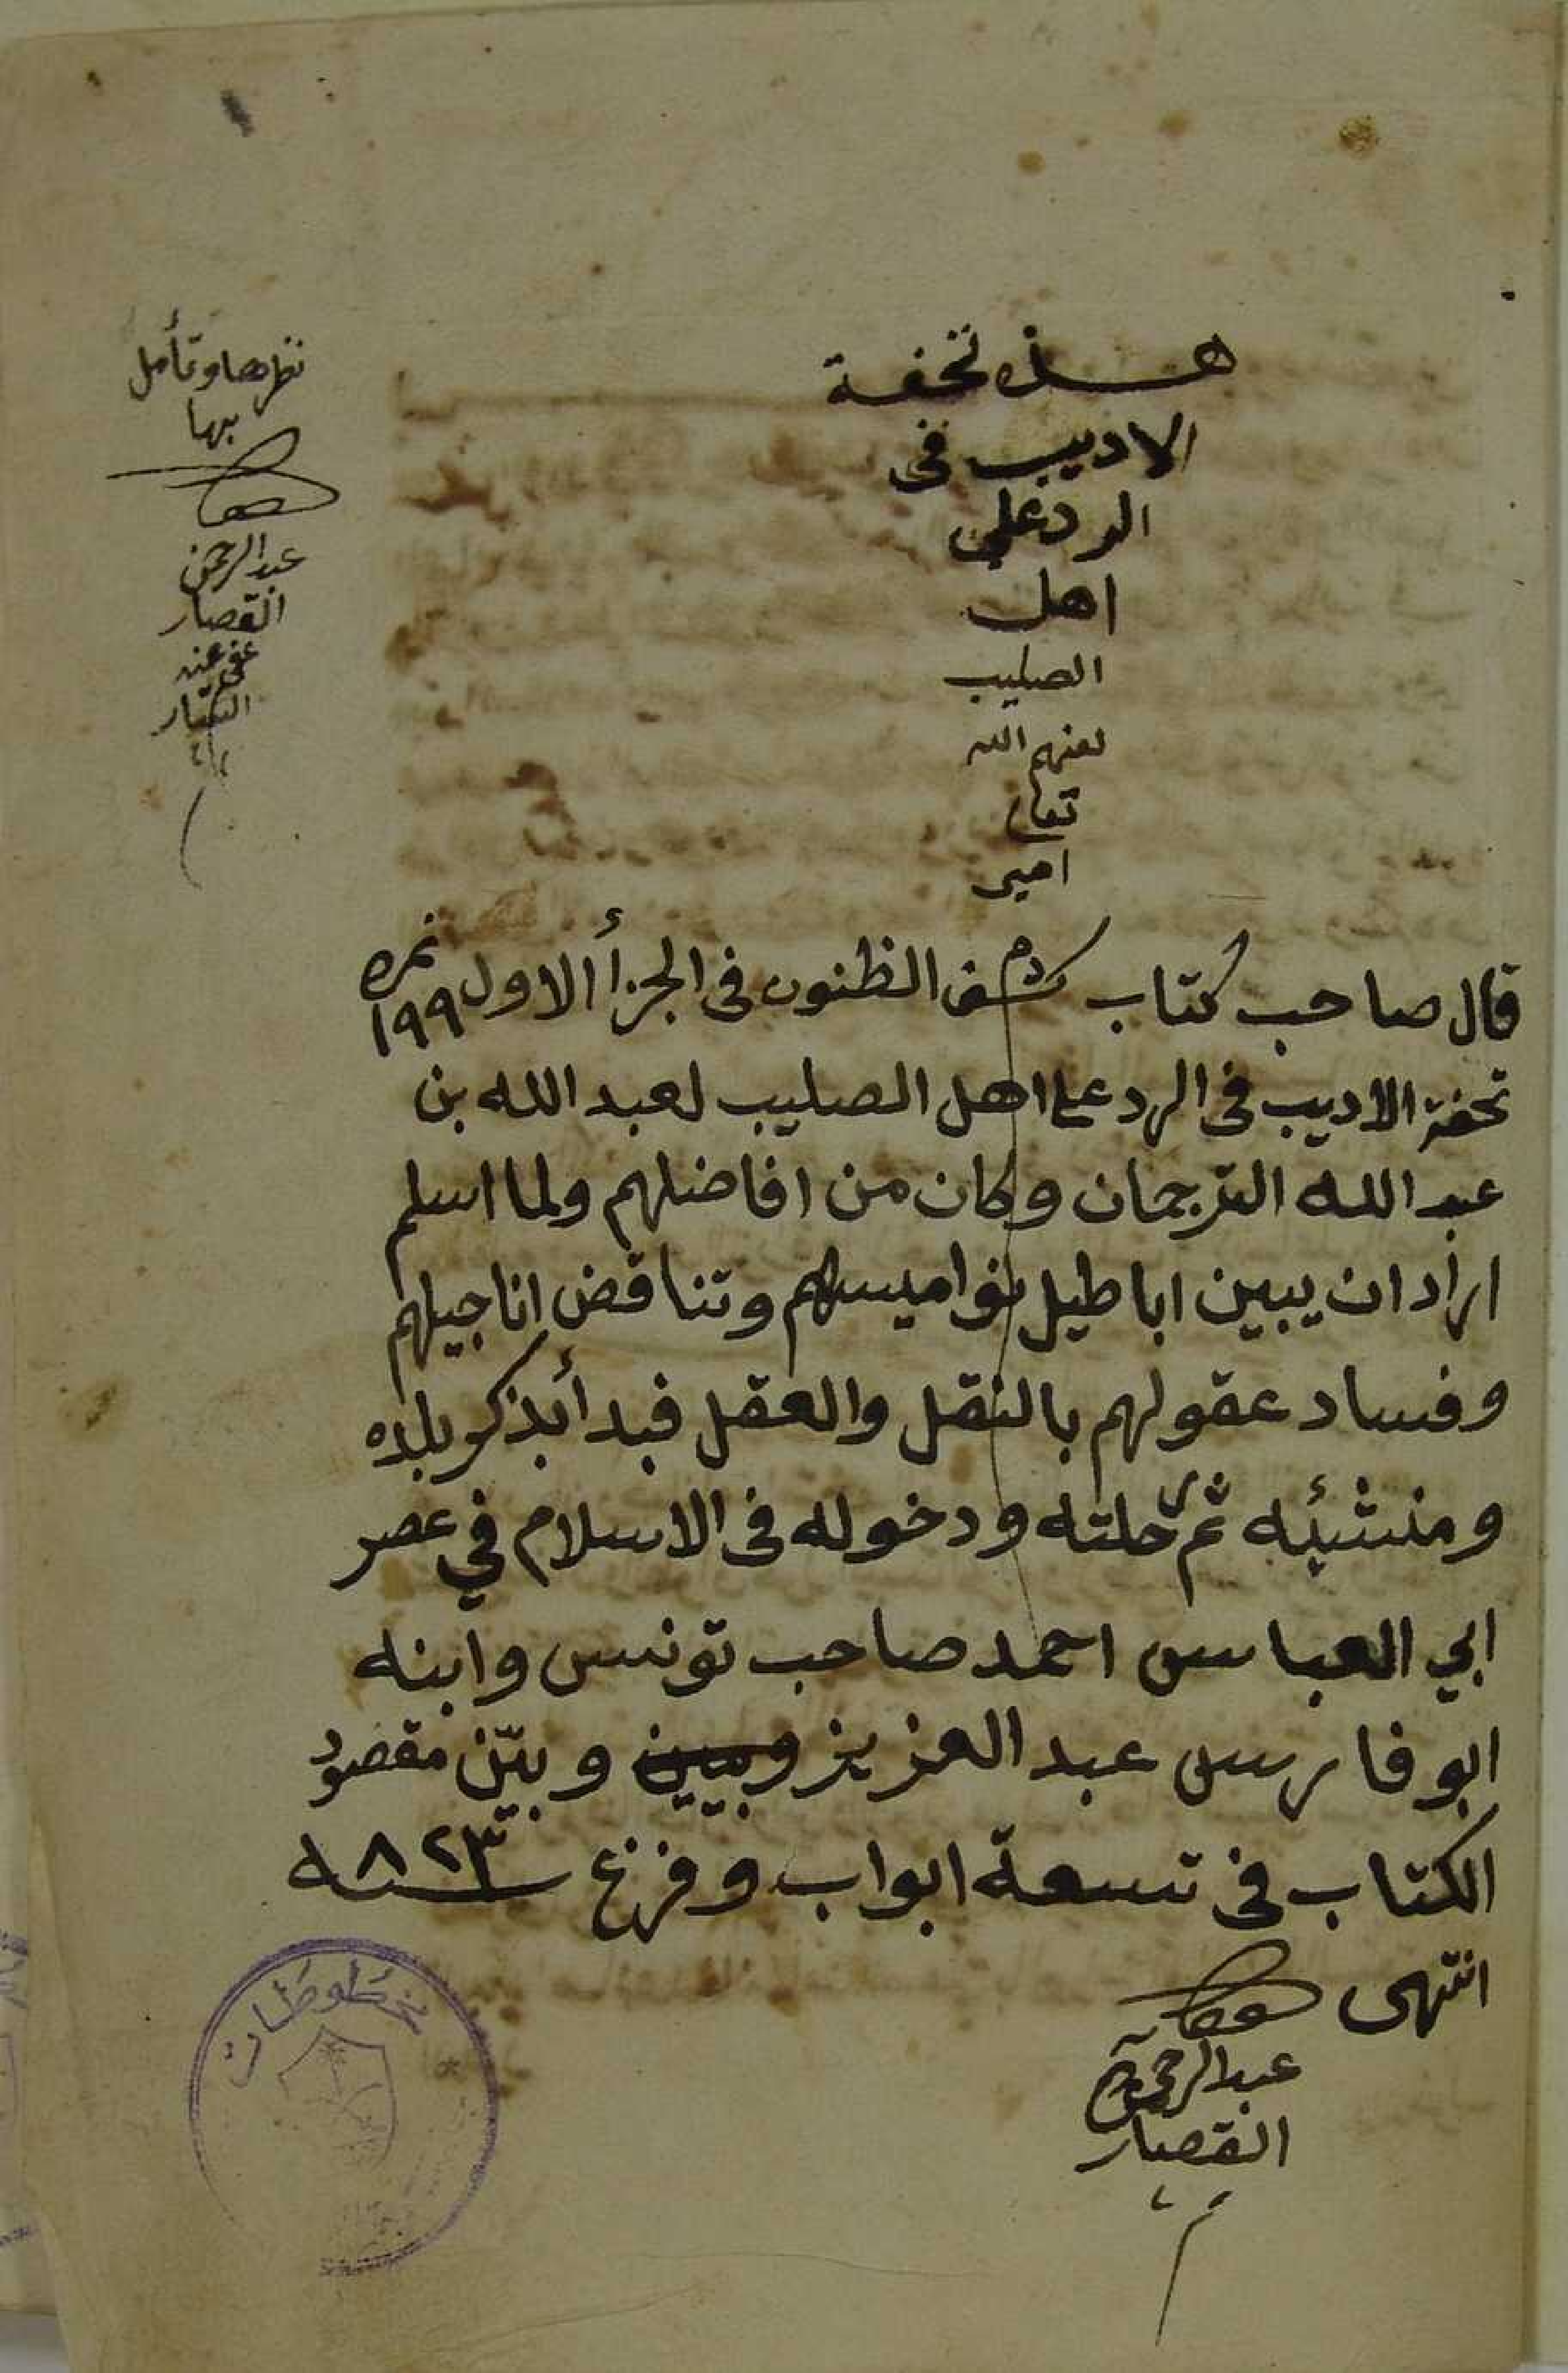 هذه تحفة
الاديب فى
الرد على
اهل
الصليب
لعنهم الله
تعالى
امين
نظر بها وتأمل
بها
عبد الرحمن
القصار
عفى عنه
الستار
قال صاحب كتاب كشف الظنون فى الجزأ الاول نمره ١٩٩
تحفة الاديب فى الرد على اهل الصليب لعبد الله بن
عبد الله الترجمان وكان من افاضلهم ولما اسلم
اراد ان يبين اباطيل نواميسهم وتناقض اناجيلهم
وفساد عقولهم بالنقل والعقل فبدأ بذكر بلده
ومنشئه ثم رحلته ودخوله فى الاسلام في عصر
ابي العباس احمد صاحب تونس وابنه
ابو فارس عبد العزيز وبيين وبيّن مقصود
الكتاب فى تسعة ابواب وفرغ سنة ٨٢٣
انتهى
عبد الرحمن
القصار
مخطوطات